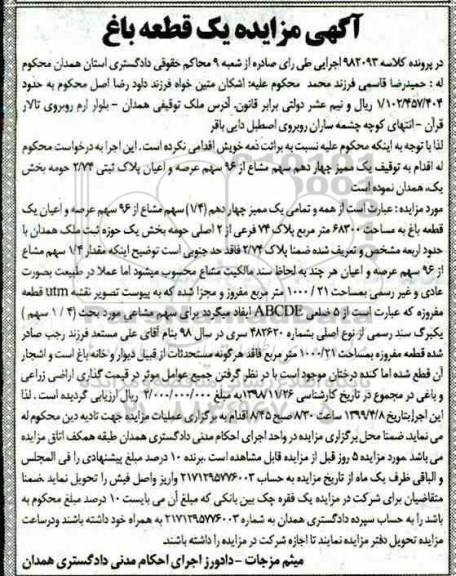 آگهی مزایده یک قطعه باغ
در پرونده کلاسه ۹۸۲۰۹۳ اجرایی طی رای صادره از شعبه ۹ محاکم حقوقی دادگستری استان همدان محکوم
له : حمیدرضا قاسمی فرزند محمد محکوم علیه: اشکان متین خواه فرزند داود رضا اصل محکوم به حدود
۱/۱۰۲/۴۵۷/۴۰۴ ریال و نیم عشر دولتی برابر قانون. آدرس ملک توقیفی همدان - بلوار ارم روبروی تالار
قرآن - انتهای کوچه چشمه ساران روبروی اصطبل دایی باقر
لذا با توجه به اینکه محکوم علیه نسبت به برائت ذمه خویش اقدامی نکرده است . این اجرا به درخواست محکوم
له اقدام به توقیف یک ممیز چهار دهم سهم مشاع از ۹۶ سهم عرصه و اعیان پلاک ثبتی ۲/۷۴ حومه بخش
یک، همدان نموده است
مورد مزایده : عبارت است از همه و تمامی یک ممیز چهار دهم (۱/۴) سهم مشاع از ۹۶ سهم عرصه و اعیان یک
قطعه باغ به مساحت ۶۸۳۰۰ متر مربع پلاک ۷۴ فرعی از ۲ اصلی حومه بخش یک حوزه ثبت ملک همدان با
حدود اربعه مشخص و تعریف شده ضمنا پلاک ۲/۷۴ فاقد حد جنوبی است توضیح اینکه مقدار ۱/۴ سهم مشاع
از ۹۶ سهم عرصه و اعیان هر چند به لحاظ سند مالکیت مشاع محسوب میشود اما عملا در طبیعت بصورت
عادی و غیر رسمی بمساحت ۲۱ / ۱۰۰۰ متر مربع مفروز و مجزا شده که به پیوست تصویر نقشه utm قطعه
مفروزه که عبارت است از ۵ ضلعی ABCDE ایفاد میگردد برای سهم مشاعی مورد بحث (۴ / ۱ سهم )
یکبرگ سند رسمی از نوع اصلی بشماره ۴۸۲۶۲۰ سری د سال ۹۸ بنام آقای علی مستعد فرزند رجب صادر
شده قطعه مفروزه بمساحت ۱۰۰۰/۲۱ متر مربع فاقد هرگونه مستحدثات از قبیل دیوار و خانه باغ است و اشجار
آن قطع شده اما کنده درختان موجود است با در نظر گرفتن جمیع عوامل موثر در قیمت گذاری اراضی زراعی
و باغی در مجموع در تاریخ کارشناسی ۱۳۹۸/۱۱/۲۶ به مبلغ ۲/۰۰۰/۰۰۰/۰۰۰ ریال ارزیابی گردیده است . لذا
این اجرا بتاریخ ۱۳۹۹/۴/۸ ساعت ۸:۳۰ صبح ۸/۴۵ اقدام به برگزاری عملیات مزایده جهت تادیه دین محکوم له
می نماید. ضمنا محل برگزاری مزایده در واحد اجرای احکام مدنی دادگستری همدان طبقه همکف اتاق مزایده
می باشد .مورد مزایده ۵ روز قبل از مزایده قابل مشاهده است .برنده ۱۰ درصد مبلغ پیشنهادی را فی المجلس
و الباقی ظرف یک ماه از تاریخ مزایده به حساب ۲۱۷۱۲۹۵۷۷۶۰۰۳ واریز واصل فیش را تحویل نماید .ضمنا
متقاضیان برای شرکت در مزایده یک فقره چک بین بانکی که مبلغ آن می بایست ۱۰ درصد مبلغ محکوم به
باشد را به حساب سپرده دادگستری همدان به شماره ۲۱۷۱۲۹۵۷۷۶۰۰۳ به همراه خود داشته باشند و در ساعت
مزایده تحویل دفتر مزایده نمایند تا اجازه شرکت در مزایده را داشته باشند.
میثم مزجات - دادورز اجرای احکام مدنی دادگستری همدان